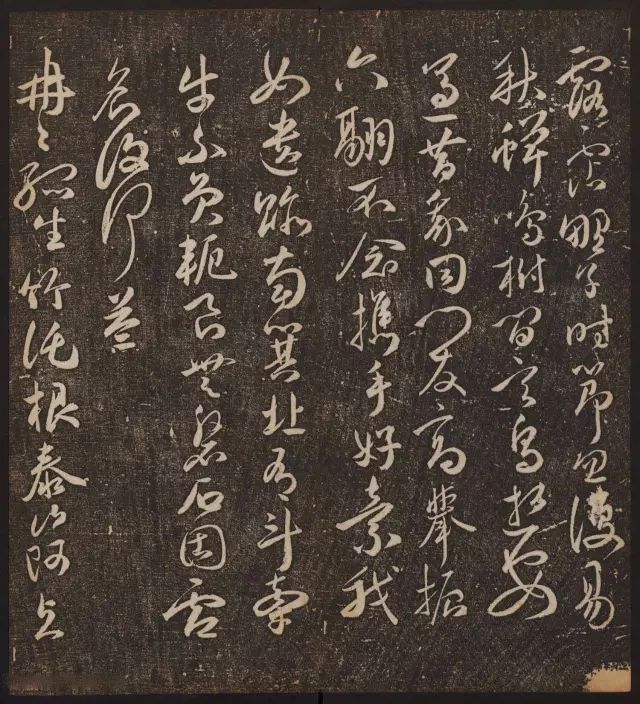 露霑野草時節忽復易
秋蟬鳴樹間玄鳥逝安
適昔我同門友高舉振
六翮不念攜手好棄我
如遺跡南箕北有斗牽
牛不負軛良無盤石固虛
名復何益
冉〻孤生竹結根泰山阿與